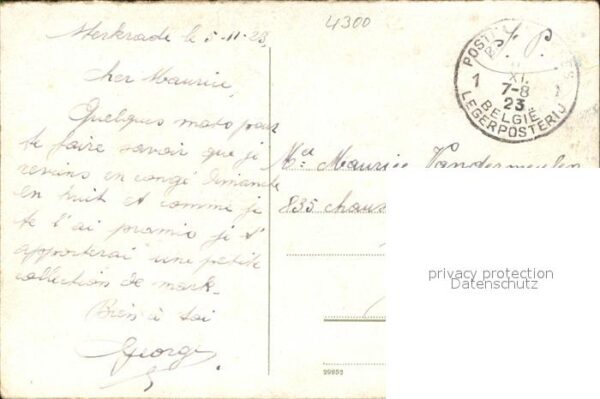 Merkrade le 5-11-23,
4300
Cher Maurice,
Quelques mots pour
te faire savoir que je
reviens en congé Dimanche
en huit et comme je
te l'ai promis je t'
apporterai une petite
collection de mark.
Bien à toi
George
POSTES
S. P.
1 XI. 1
7-8
23
BELGIË
LEGERPOSTERIJ
Mr Maurice Vandermeulen
835 chaus
29252
privacy protection
Datenschutz